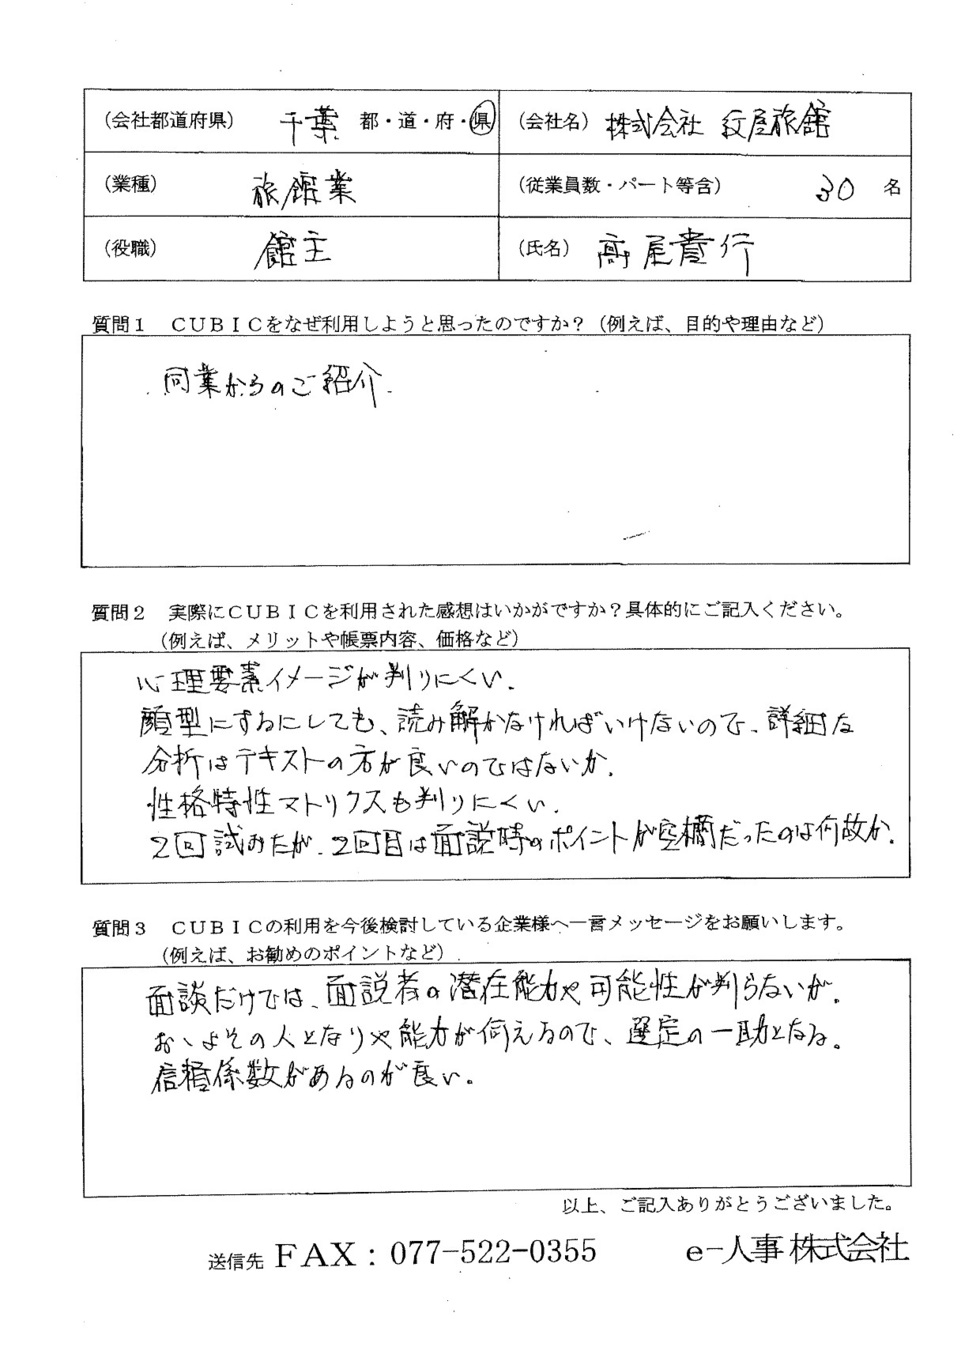 (会社都道府県) 千葉 都・道・府・県 (会社名) 株式会社 紋屋旅館
(業種) 旅館業 (従業員数・パート等含) 30 名
(役職) 館主 (氏名) 高尾貴行
質問1 CUBICをなぜ利用しようと思ったのですか?(例えば、目的や理由など)
同業からのご紹介.
質問2 実際にCUBICを利用された感想はいかがですか?具体的にご記入ください。
(例えば、メリットや帳票内容、価格など)
心理要素イメージが判りにくい.
顔型にするにしても、読み解かなければいけないので、詳細な
分析はテキストの方が良いのではないか.
性格特性マトリクスも判りにくい.
2回試みたが、2回目は面説時のポイントが空欄だったのは何故か.
質問3 CUBICの利用を今後検討している企業様へ一言メッセージをお願いします。
(例えば、お勧めのポイントなど)
面談だけでは、面説者の潜在能力や可能性が判らないが、
おゝよその人となりや能力が伺えるので、選定の一助となる。
信頼係数があるのが良い。
以上、ご記入ありがとうございました。
送信先 FAX:077-522-0355 e-人事株式会社